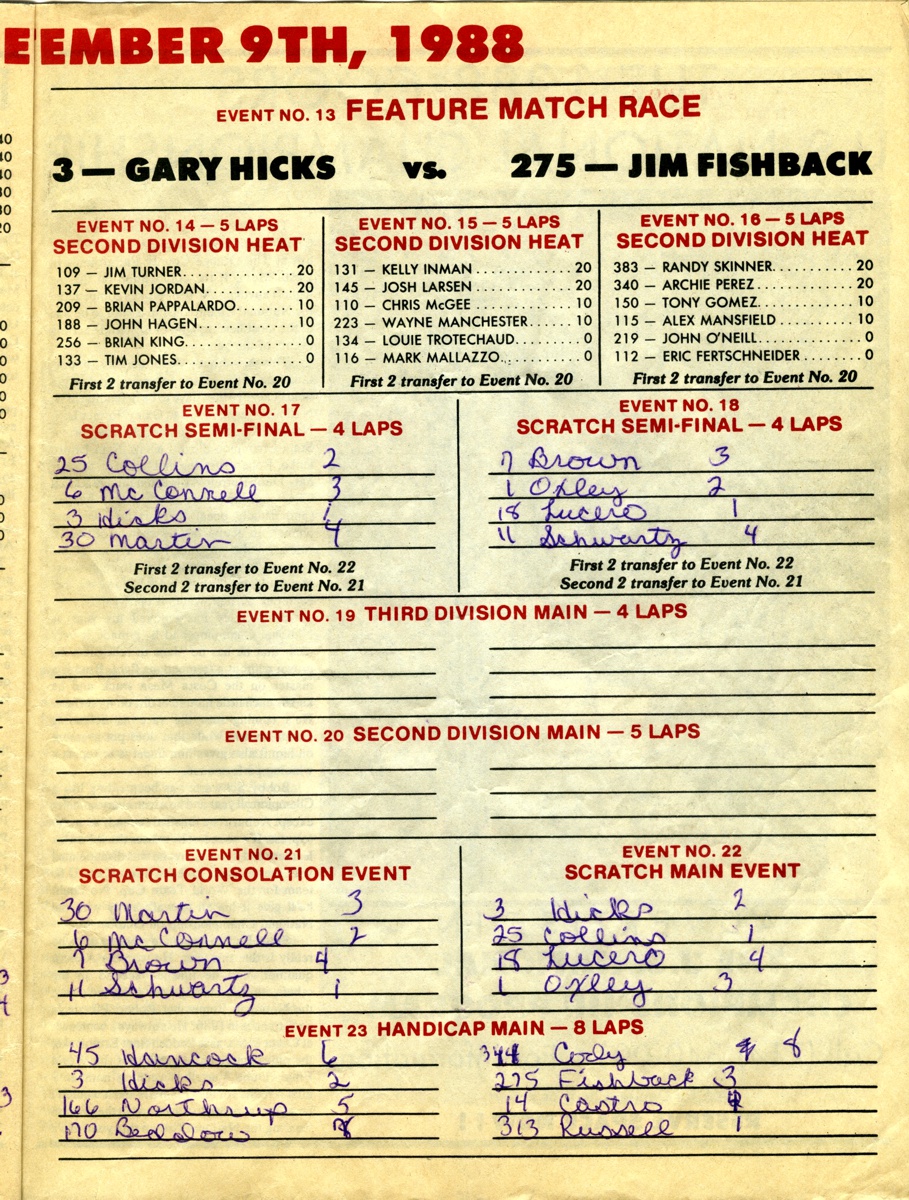 EMBER 9TH, 1988
EVENT NO. 13 FEATURE MATCH RACE
3 — GARY HICKS vs. 275 — JIM FISHBACK
EVENT NO. 14 — 5 LAPS
SECOND DIVISION HEAT
109 — JIM TURNER. . . . . . . . . . . . . . 20
137 — KEVIN JORDAN. . . . . . . . . . . 20
209 — BRIAN PAPPALARDO. . . . . . 10
188 — JOHN HAGEN. . . . . . . . . . . . 10
256 — BRIAN KING. . . . . . . . . . . . . . 0
133 — TIM JONES. . . . . . . . . . . . . . . 0
First 2 transfer to Event No. 20
EVENT NO. 15 — 5 LAPS
SECOND DIVISION HEAT
131 — KELLY INMAN . . . . . . . . . . . . 20
145 — JOSH LARSEN . . . . . . . . . . . . 20
110 — CHRIS McGEE . . . . . . . . . . . . 10
223 — WAYNE MANCHESTER. . . . . . 10
134 — LOUIE TROTECHAUD. . . . . . . . 0
116 — MARK MALLAZZO. . . . . . . . . . 0
First 2 transfer to Event No. 20
EVENT NO. 16 — 5 LAPS
SECOND DIVISION HEAT
383 — RANDY SKINNER. . . . . . . . . . 20
340 — ARCHIE PEREZ. . . . . . . . . . . . 20
150 — TONY GOMEZ. . . . . . . . . . . . 10
115 — ALEX MANSFIELD . . . . . . . . . 10
219 — JOHN O'NEILL. . . . . . . . . . . . . 0
112 — ERIC FERTSCHNEIDER . . . . . . . 0
First 2 transfer to Event No. 20
EVENT NO. 17
SCRATCH SEMI-FINAL — 4 LAPS
25 Collins 2
6 McConnell 3
3 Hicks 1
30 Martin 4
First 2 transfer to Event No. 22
Second 2 transfer to Event No. 21
EVENT NO. 18
SCRATCH SEMI-FINAL — 4 LAPS
7 Brown 3
1 Oxley 2
18 Lucero 1
11 Schwartz 4
First 2 transfer to Event No. 22
Second 2 transfer to Event No. 21
EVENT NO. 19 THIRD DIVISION MAIN — 4 LAPS
EVENT NO. 20 SECOND DIVISION MAIN — 5 LAPS
EVENT NO. 21
SCRATCH CONSOLATION EVENT
30 Martin 3
6 McConnell 2
7 Brown 4
11 Schwartz 1
EVENT NO. 22
SCRATCH MAIN EVENT
3 Hicks 2
25 Collins 1
18 Lucero 4
1 Oxley 3
EVENT 23 HANDICAP MAIN — 8 LAPS
45 Hancock 6
3 Hicks 2
166 Northrup 5
170 Beddow
344 Cody 8
275 Fishback 3
14 Castro 4
313 Russell 1